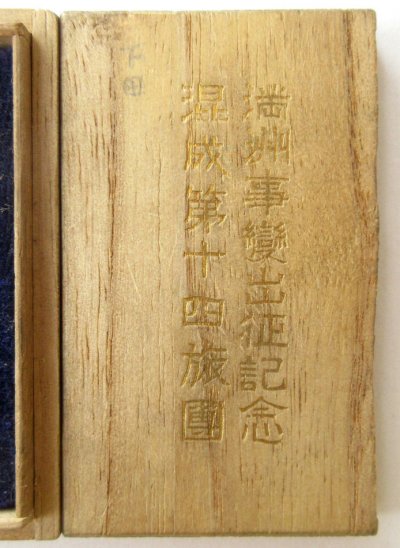 満州事變出征記念
混成第十四旅團
下田